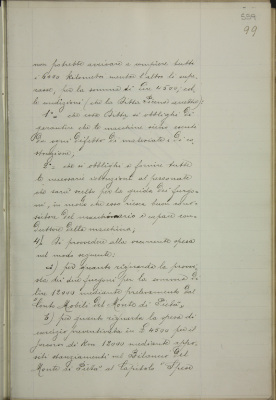 584
99
non potrebbe arrivare a compiere tutti
i 6000 kilometri mentre l'altro li supe-
rasse, per la somma di Lire 4500, ed
le condizioni (che la Ditta
1° - che essa Ditta si obblighi di
garantire che le macchine siano esenti
da ogni difetto di materiale e di co-
struzione;
2° - che si obblighi a fornire tutte
le necessarie istruzioni al personale
che sarà scelto per la guida dei furgo-
ni, in modo che esso riesca buon
del macchinario e capace con-
duttore delle macchine;
4) Di provvedere alla occorrente spesa
nel modo seguente:
a) per quanto riguarda la provvi-
sta dei due furgoni per la somma di
Lire 12000 mediante prelevamento dal
"Conto Mobili del Monte di Pietà",
b) per quanto riguarda la spesa di
esercizio preventivata in £ 4500 per il
percorso di Km 12000 mediante appo-
siti stanziamenti nel Bilancio del
Monte di Pietà al Capitolo "Spese